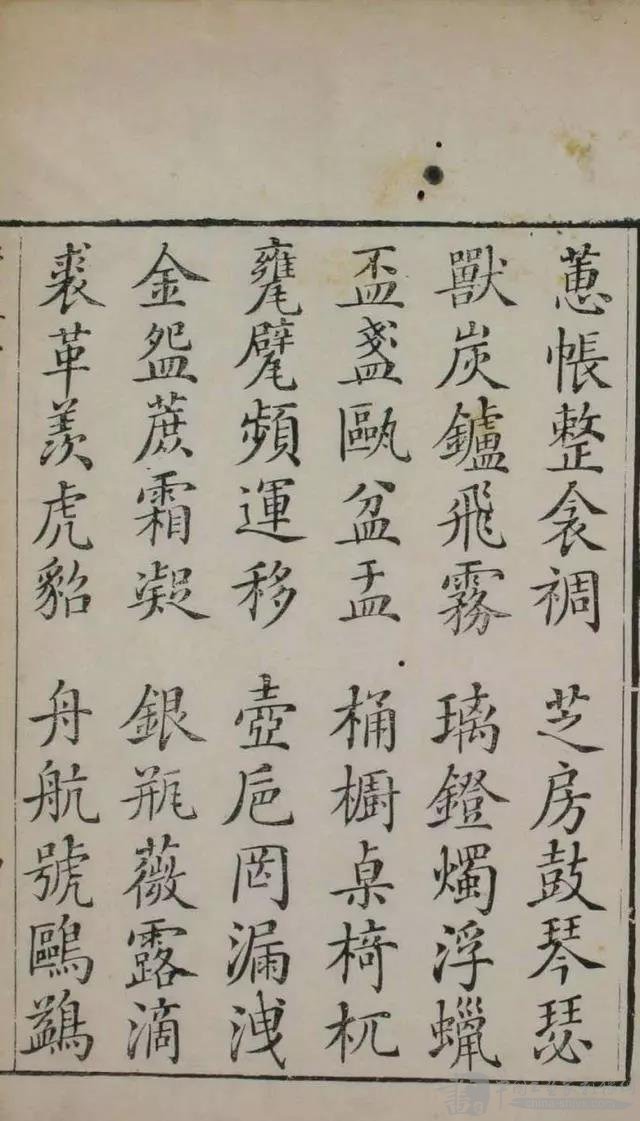 蕙帳整衾裯 芝房鼓琴瑟
獸炭鑪飛霧 璃鐙燭浮蠟
盃盞甌盆盂 桶櫥桌椅杌
甕甓頻運移 壺卮罔漏洩
金盌蔗霜凝 銀瓶薇露滴
裘革羨虎貂 舟航號鷗鷁